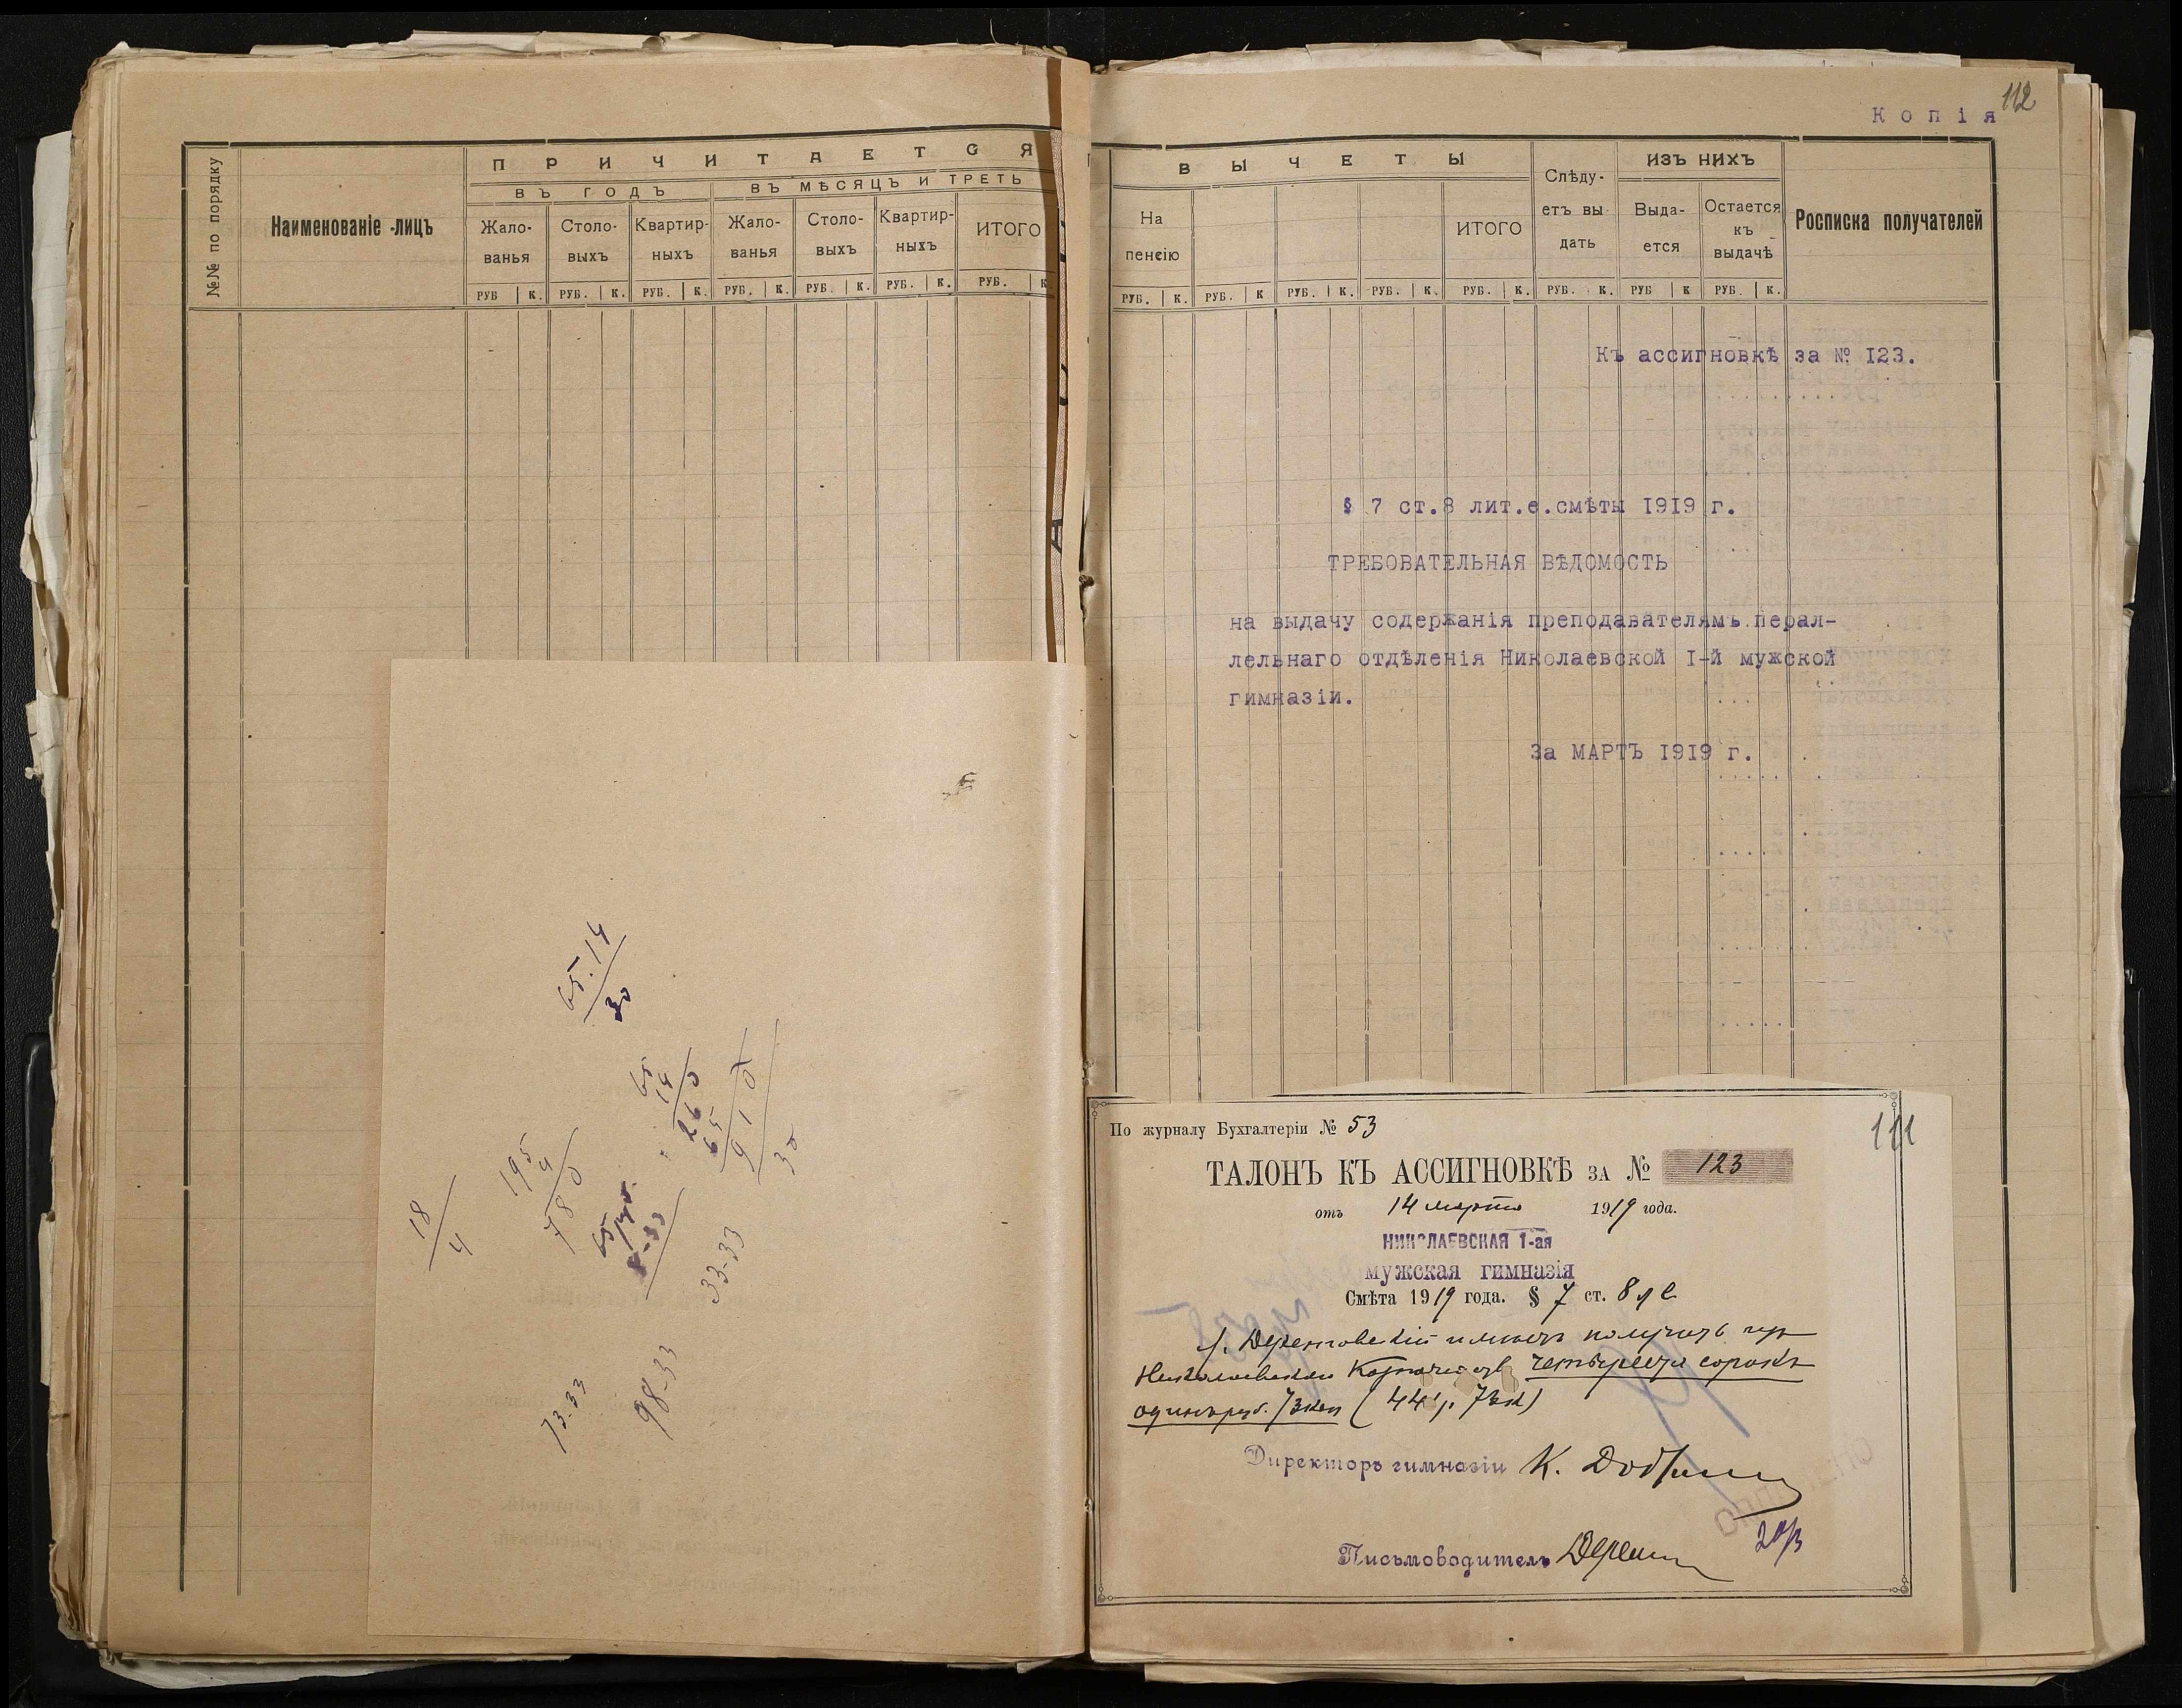 №№ по порядку
Наименованіе лицъ
ПРИЧИТАЕТСЯ
ВЪ ГОДЪ
ВЪ МѢСЯЦЪ И ТРЕТЬ
Жало-
ванья
Столо-
выхъ
Квартир-
ныхъ
Жало-
ванья
Столо-
выхъ
Квартир-
ныхъ
ИТОГО
РУБ К. РУБ. К. РУБ. К. РУБ. К. РУБ. К. РУБ. К. РУБ. К
65.14
30
65
14
260
65
910
30
195
4
780
18
4
65 руб.
8-33
33-33
73-33
98-33
112
Копія
ВЫЧЕТЫ
На
пенсію
ИТОГО
Слѣду-
етъ вы
дать
ИЗЪ НИХЪ
Выда-
ется
Остается
къ
выдачѣ
Росписка получателей
РУБ. К. РУБ. К РУБ. К. РУБ. К. РУБ. К. РУБ. К. РУБ К РУБ. К.
Къ ассигновкѣ за № I23.
§ 7 ст.8 лит.е.смѣты I9I9 г.
ТРЕБОВАТЕЛЬНАЯ ВѢДОМОСТЬ
на выдачу содержанія преподавателямъ перал-
лельнаго отдѣленія Николаевской I-й мужской
гимназіи.
За МАРТЪ I9I9 г.
111
По журналу Бухгалтеріи № 53
ТАЛОНЪ КЪ АССИГНОВКѢ ЗА № 123
отъ 14 марта 1919 года.
НИКОЛАЕВСКАЯ 1-ая
мужская гимназія
Смѣта 1919 года. § 7 ст. 8 л е
имѣетъ получить изъ
четыреста сорокъ
одинъ руб. 73 коп (441 р. 73 к)
Директоръ гимназіи К.
Письмоводитель
20/3